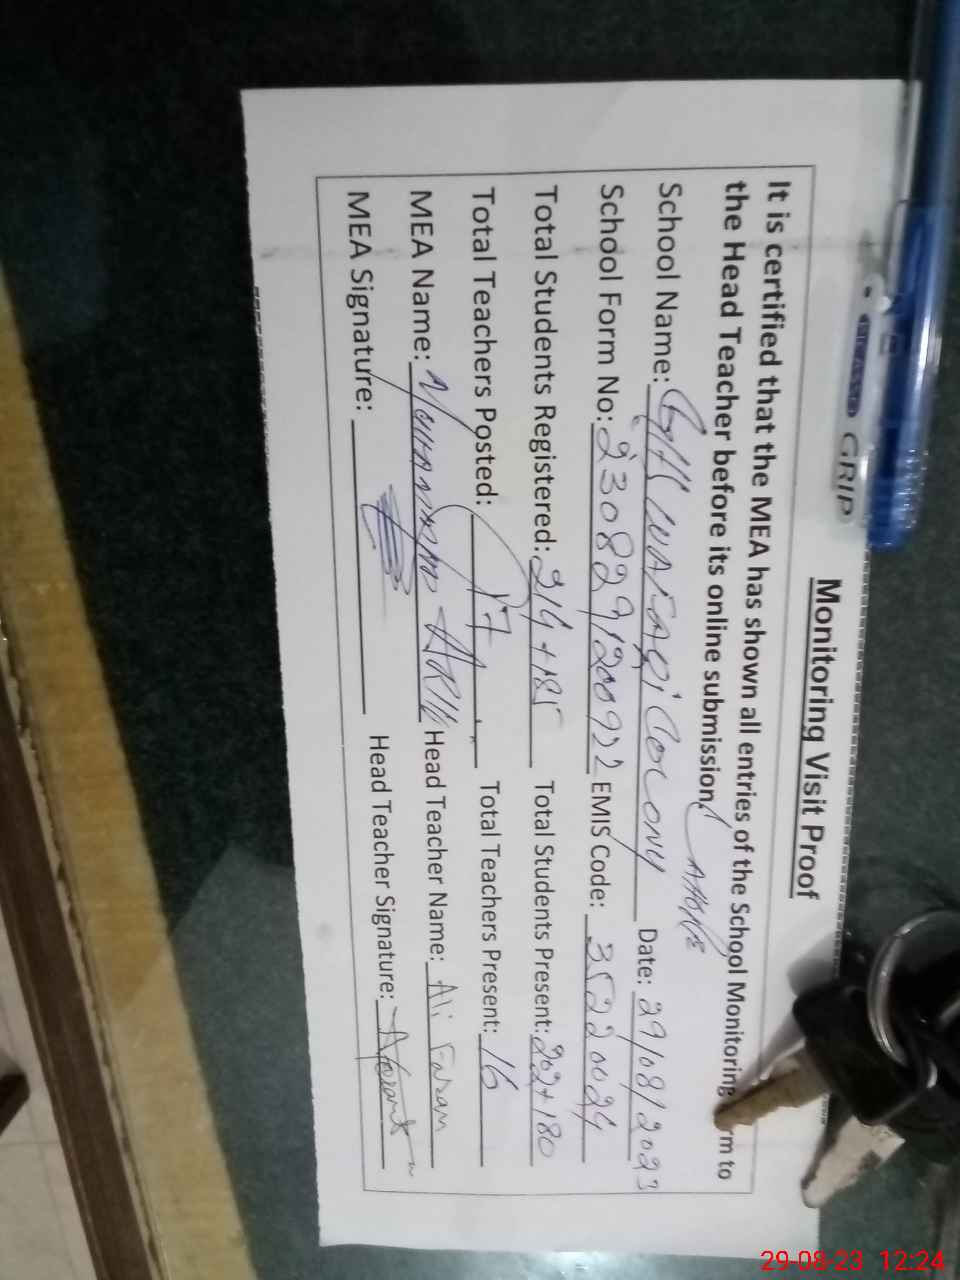 Monitoring Visit Proof
It is certified that the MEA has shown all entries of the School Monitoring rm to
the Head Teacher before its online submission.
School Name: Colony Date: 29/08/2023
School Form No: 2308291200922 EMIS Code: 35220024
Total Students Registered: 214+185 Total Students Present: 202+180
Total Teachers Posted: 17 Total Teachers Present: 16
MEA Name: Muhammad Head Teacher Name: Ali
MEA Signature: Head Teacher Signature:
GRIP
29-08-23 12:24